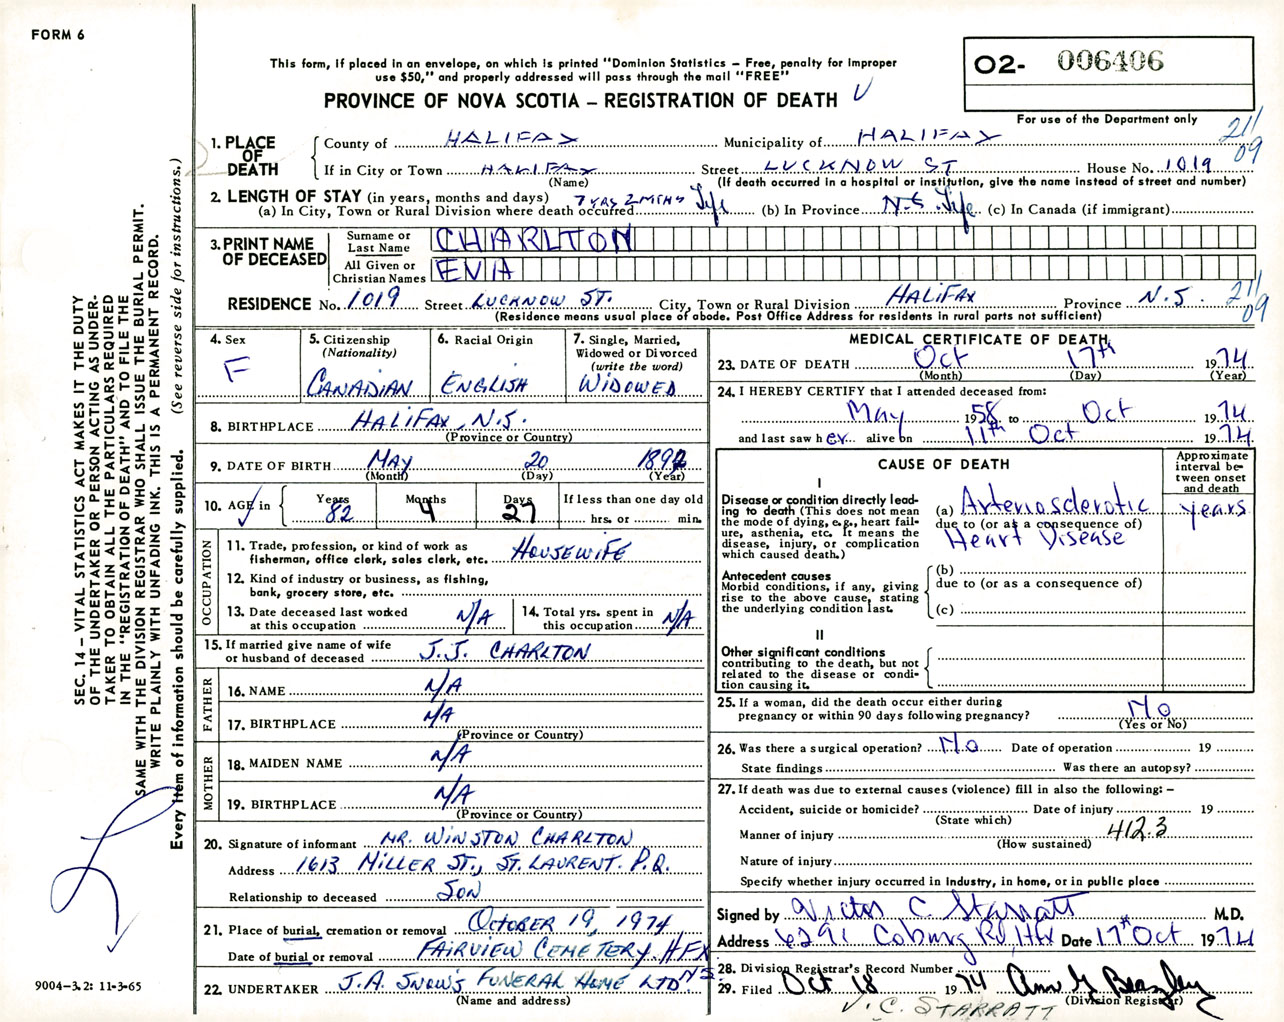 FORM 6
This form, if placed in an envelope, on which is printed "Dominion Statistics – Free, penalty for improper
use $50," and properly addressed will pass through the mail "FREE"
PROVINCE OF NOVA SCOTIA – REGISTRATION OF DEATH
O2- 006406
For use of the Department only
211
09
1. PLACE OF DEATH
County of HALIFAX Municipality of HALIFAX
If in City or Town HALIFAX Street LUCKNOW ST House No. 1019
(Name) (If death occurred in a hospital or institution, give the name instead of street and number)
2. LENGTH OF STAY (in years, months and days)
(a) In City, Town or Rural Division where death occurred 7 yrs 2 mths Life (b) In Province N.S. Life (c) In Canada (if immigrant)
3. PRINT NAME OF DECEASED
Surname or Last Name CHARLTON
All Given or Christian Names EVIA
RESIDENCE No. 1019 Street LUCKNOW ST. City, Town or Rural Division HALIFAX Province N.S.
211
09
(Residence means usual place of abode. Post Office Address for residents in rural parts not sufficient)
4. Sex F
5. Citizenship (Nationality) CANADIAN
6. Racial Origin ENGLISH
7. Single, Married, Widowed or Divorced (write the word) WIDOWED
8. BIRTHPLACE HALIFAX, N.S.
(Province or Country)
9. DATE OF BIRTH MAY 20 1892
(Month) (Day) (Year)
10. AGE in Years 82 Months 4 Days 27 If less than one day old
hrs. or min.
OCCUPATION
11. Trade, profession, or kind of work as fisherman, office clerk, sales clerk, etc. HOUSEWIFE
12. Kind of industry or business, as fishing, bank, grocery store, etc.
13. Date deceased last worked at this occupation N/A
14. Total yrs. spent in this occupation N/A
15. If married give name of wife or husband of deceased J.J. CHARLTON
FATHER
16. NAME N/A
17. BIRTHPLACE N/A
(Province or Country)
MOTHER
18. MAIDEN NAME N/A
19. BIRTHPLACE N/A
(Province or Country)
20. Signature of informant MR. WINSTON CHARLTON
Address 1613 MILLER ST., ST. LAURENT. P.Q.
Relationship to deceased SON
21. Place of burial, cremation or removal OCTOBER 19, 1974
Date of burial or removal FAIRVIEW CEMETERY. HFX N.S.
22. UNDERTAKER J.A. SNOW'S FUNERAL HOME LTD
(Name and address)
MEDICAL CERTIFICATE OF DEATH
23. DATE OF DEATH Oct 17th 1974
(Month) (Day) (Year)
24. I HEREBY CERTIFY that I attended deceased from:
May 1958 to Oct 1974
and last saw her alive on 11th Oct 1974
CAUSE OF DEATH
Approximate interval between onset and death
I
Disease or condition directly leading to death (This does not mean the mode of dying, e.g., heart failure, asthenia, etc. It means the disease, injury, or complication which caused death.)
(a) Arteriosclerotic years
due to (or as a consequence of)
Heart Disease
Antecedent causes
Morbid conditions, if any, giving rise to the above cause, stating the underlying condition last.
(b)
due to (or as a consequence of)
(c)
II
Other significant conditions
contributing to the death, but not related to the disease or condition causing it.
25. If a woman, did the death occur either during pregnancy or within 90 days following pregnancy? No
(Yes or No)
26. Was there a surgical operation? No Date of operation 19
State findings Was there an autopsy?
27. If death was due to external causes (violence) fill in also the following: –
Accident, suicide or homicide? Date of injury 19
(State which)
Manner of injury 412.3
(How sustained)
Nature of injury
Specify whether injury occurred in industry, in home, or in public place
Signed by Victor C. Starratt M.D.
Address 6291 Coburg Rd, Hfx Date 17th Oct 1974
28. Division Registrar's Record Number
29. Filed Oct 18 1974
(Division Registrar)
V.C. STARRATT
SEC. 14 – VITAL STATISTICS ACT MAKES IT THE DUTY
OF THE UNDERTAKER OR PERSON ACTING AS UNDER-
TAKER TO OBTAIN ALL THE PARTICULARS REQUIRED
IN THE "REGISTRATION OF DEATH" AND TO FILE THE
SAME WITH THE DIVISION REGISTRAR WHO SHALL ISSUE THE BURIAL PERMIT.
WRITE PLAINLY WITH UNFADING INK. THIS IS A PERMANENT RECORD.
Every item of information should be carefully supplied. (See reverse side for instructions.)
9004-3.2: 11-3-65